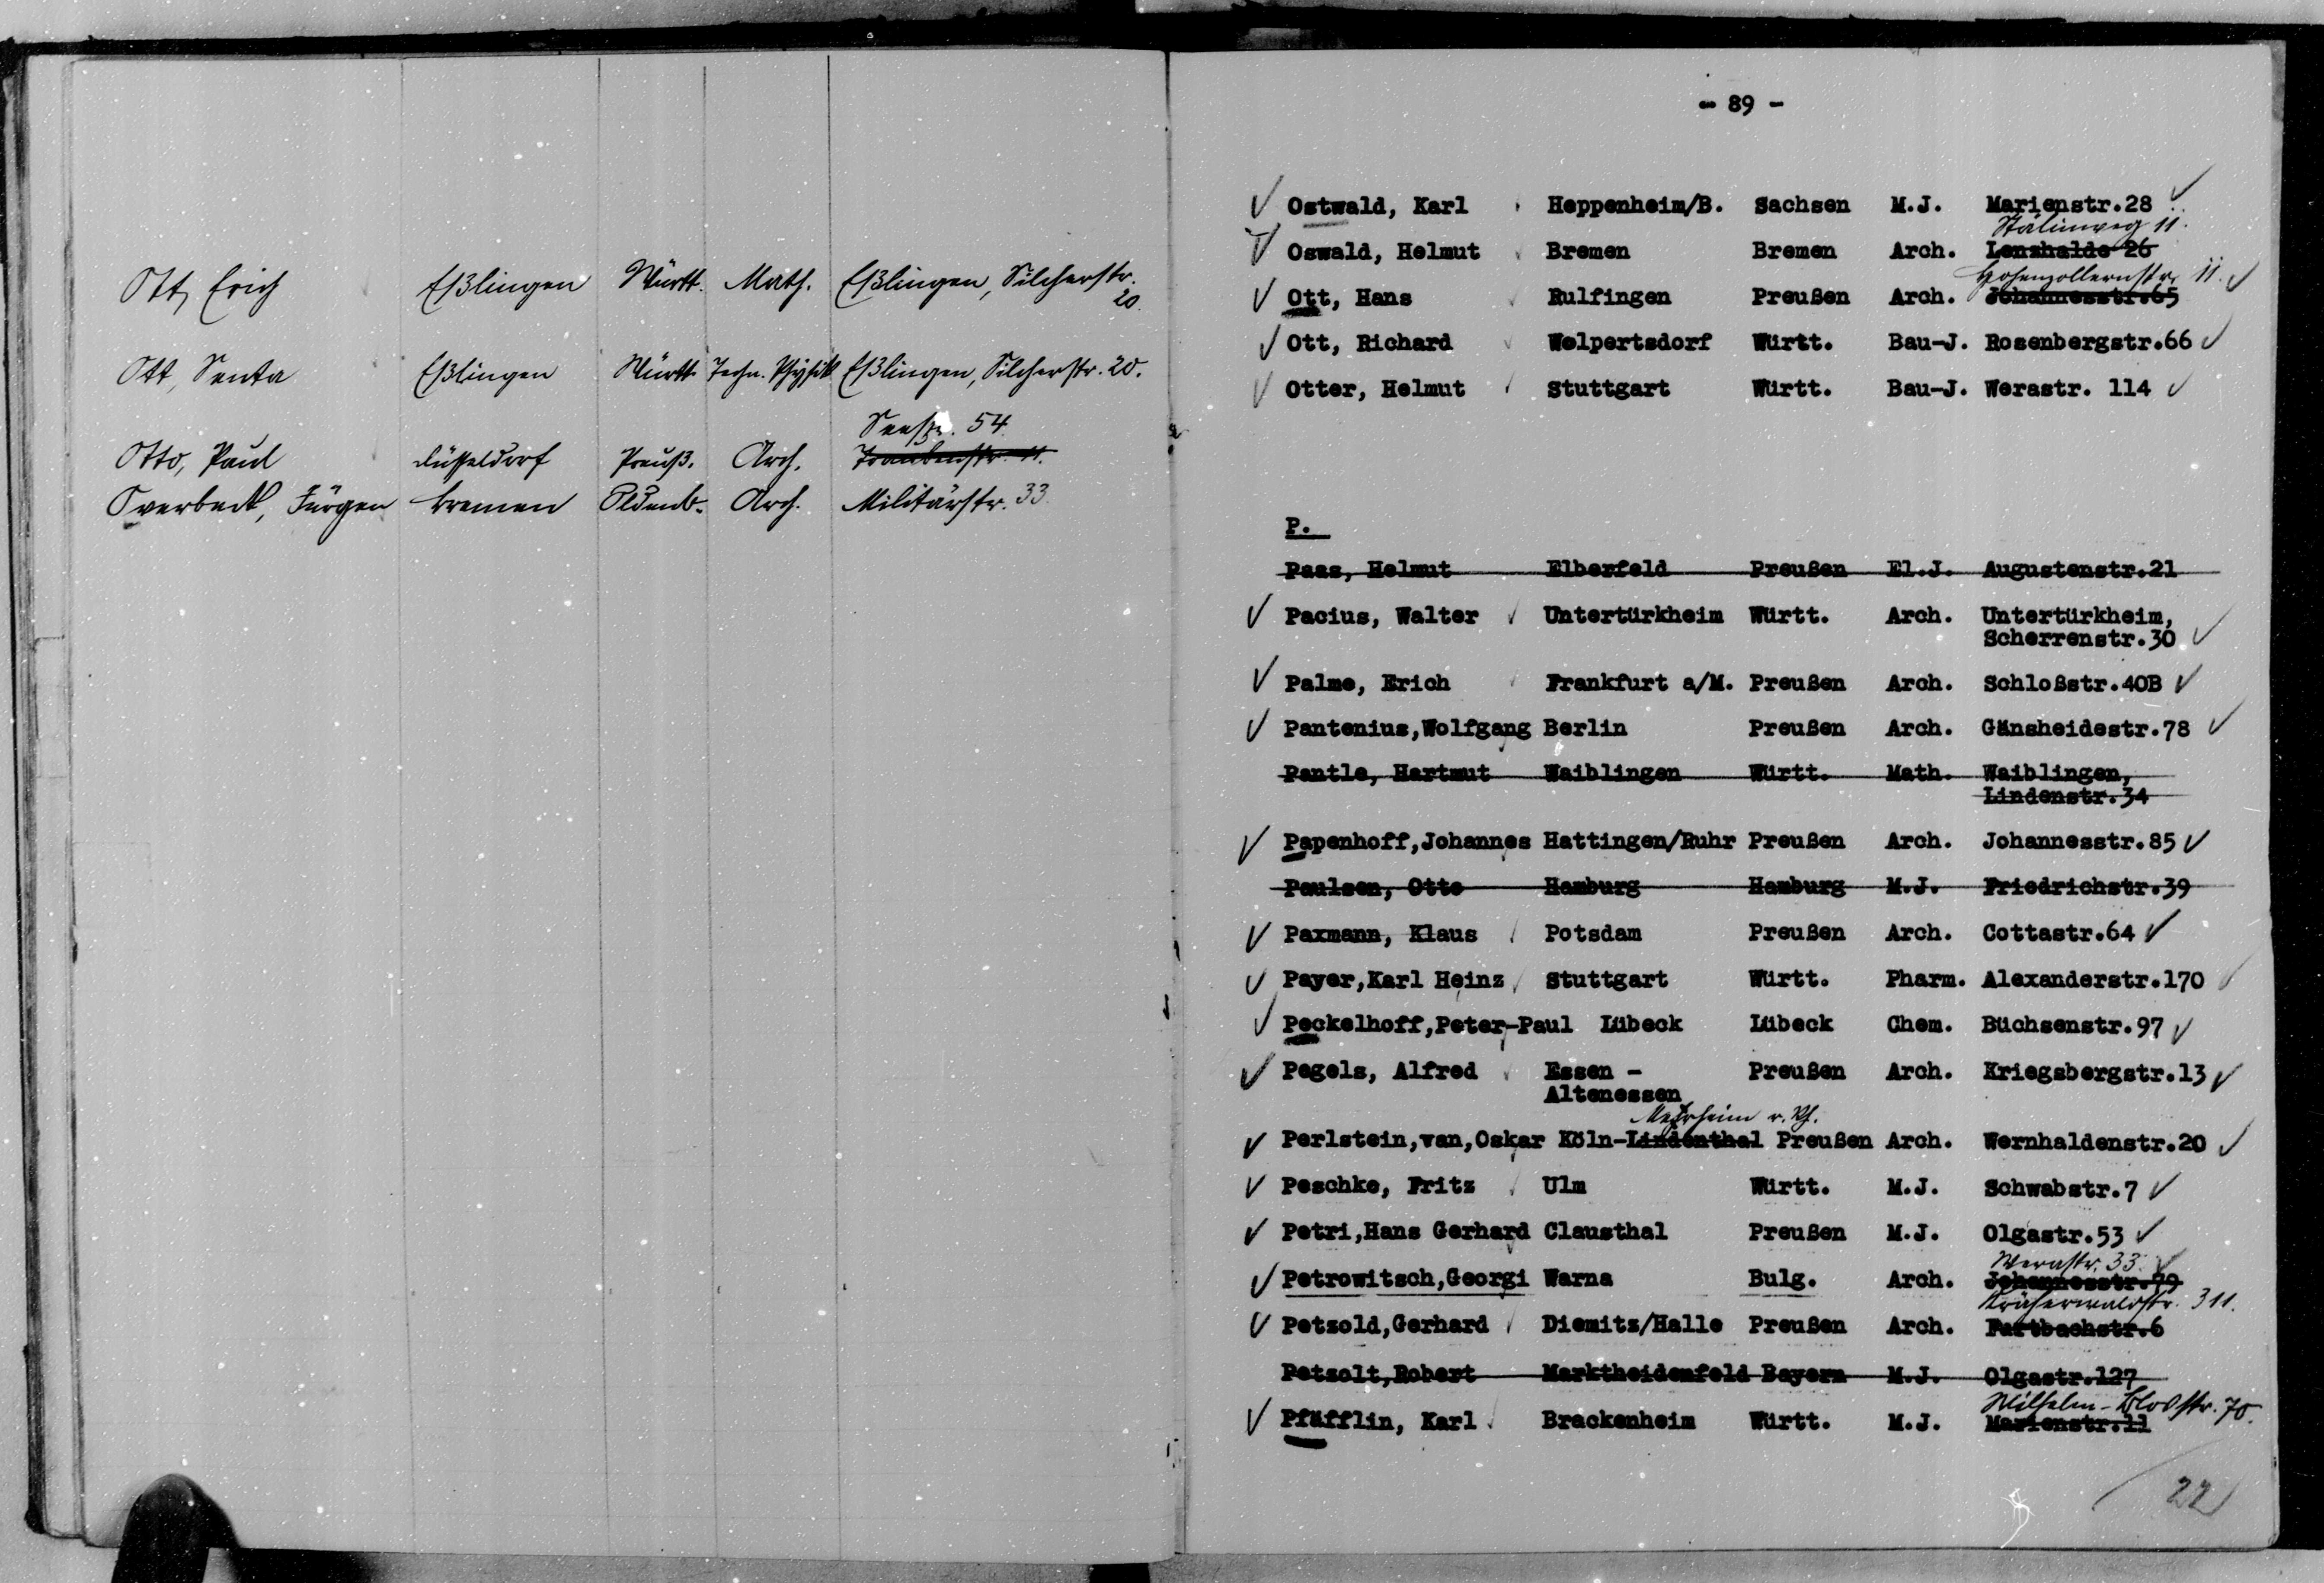 Ott, Erich Eßlingen Württ. Math. Eßlingen, Silcherstr. 20.
Ott, Senta Eßlingen Württ. Techn. Physik Eßlingen, Silcherstr. 20.
Seestr. 54
Otto, Paul Düsseldorf Preuß. Arch. Traubenstr. 11.
Overbeck, Jürgen Bremen Oldenb. Arch. Militärstr. 33
- 89 -
Ostwald, Karl Heppenheim/B. Sachsen M.J. Marienstr.28
Stälinweg 11.
Oswald, Helmut Bremen Bremen Arch. Lenzhalde 26
Hohenzollernstr. 11.
Ott, Hans Rulfingen Preußen Arch. Johannesstr.65
Ott, Richard Wolpertsdorf Württ. Bau-J. Rosenbergstr.66
Otter, Helmut Stuttgart Württ. Bau-J. Werastr. 114
P.
Paas, Helmut Elberfeld Preußen El.J. Augustenstr.21
Pacius, Walter Untertürkheim Württ. Arch. Untertürkheim,
Scherrenstr.30
Palme, Erich Frankfurt a/M. Preußen Arch. Schloßstr.40B
Pantenius,Wolfgang Berlin Preußen Arch. Gänsheidestr.78
Pantle, Hartmut Waiblingen Württ. Math. Waiblingen,
Lindenstr.34
Papenhoff,Johannes Hattingen/Ruhr Preußen Arch. Johannesstr.85
Paulsen, Otto Hamburg Hamburg M.J. Friedrichstr.39
Paxmann, Klaus Potsdam Preußen Arch. Cottastr.64
Payer,Karl Heinz Stuttgart Württ. Pharm. Alexanderstr.170
Peckelhoff,Peter-Paul Lübeck Lübeck Chem. Büchsenstr.97
Pegels, Alfred Essen - Preußen Arch. Kriegsbergstr.13
Altenessen
r. Rh.
Perlstein,van,Oskar Köln-Lindenthal Preußen Arch. Wernhaldenstr.20
Peschke, Fritz Ulm Württ. M.J. Schwabstr.7
Petri,Hans Gerhard Clausthal Preußen M.J. Olgastr.53
Werastr. 33.
Petrowitsch,Georgi Warna Bulg. Arch. Johannesstr.79
Kräherwaldstr. 311.
Petzold,Gerhard Diemitz/Halle Preußen Arch. Furtbachstr.6
Petzolt,Robert Marktheidenfeld Bayern M.J. Olgastr.127
Wilhelm-Blosstr. 70.
Pfäfflin, Karl Brackenheim Württ. M.J. Marienstr.11
22